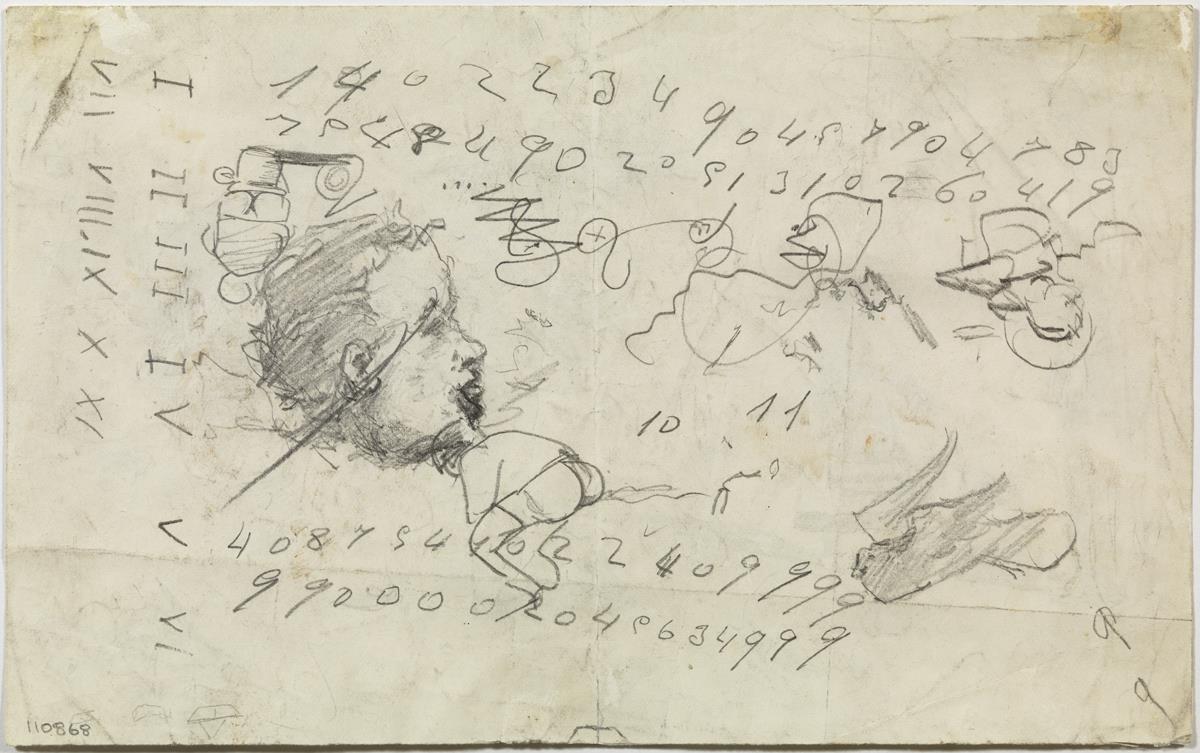 1 4 0 2 2 3 4 9 0 4 5 7 9 0 4 7 8 3
7 5 4 8 4 9 0 2 0 5 1 3 1 0 2 6 0 4 1 9
10 11
4 0 8 7 5 4 1 0 2 2 4 0 9 9 9 9
9 9 0 0 0 0 2 0 4 5 6 3 4 9 9 9
I II III IV V VI
VII VIII IX X XI
9
9
110868